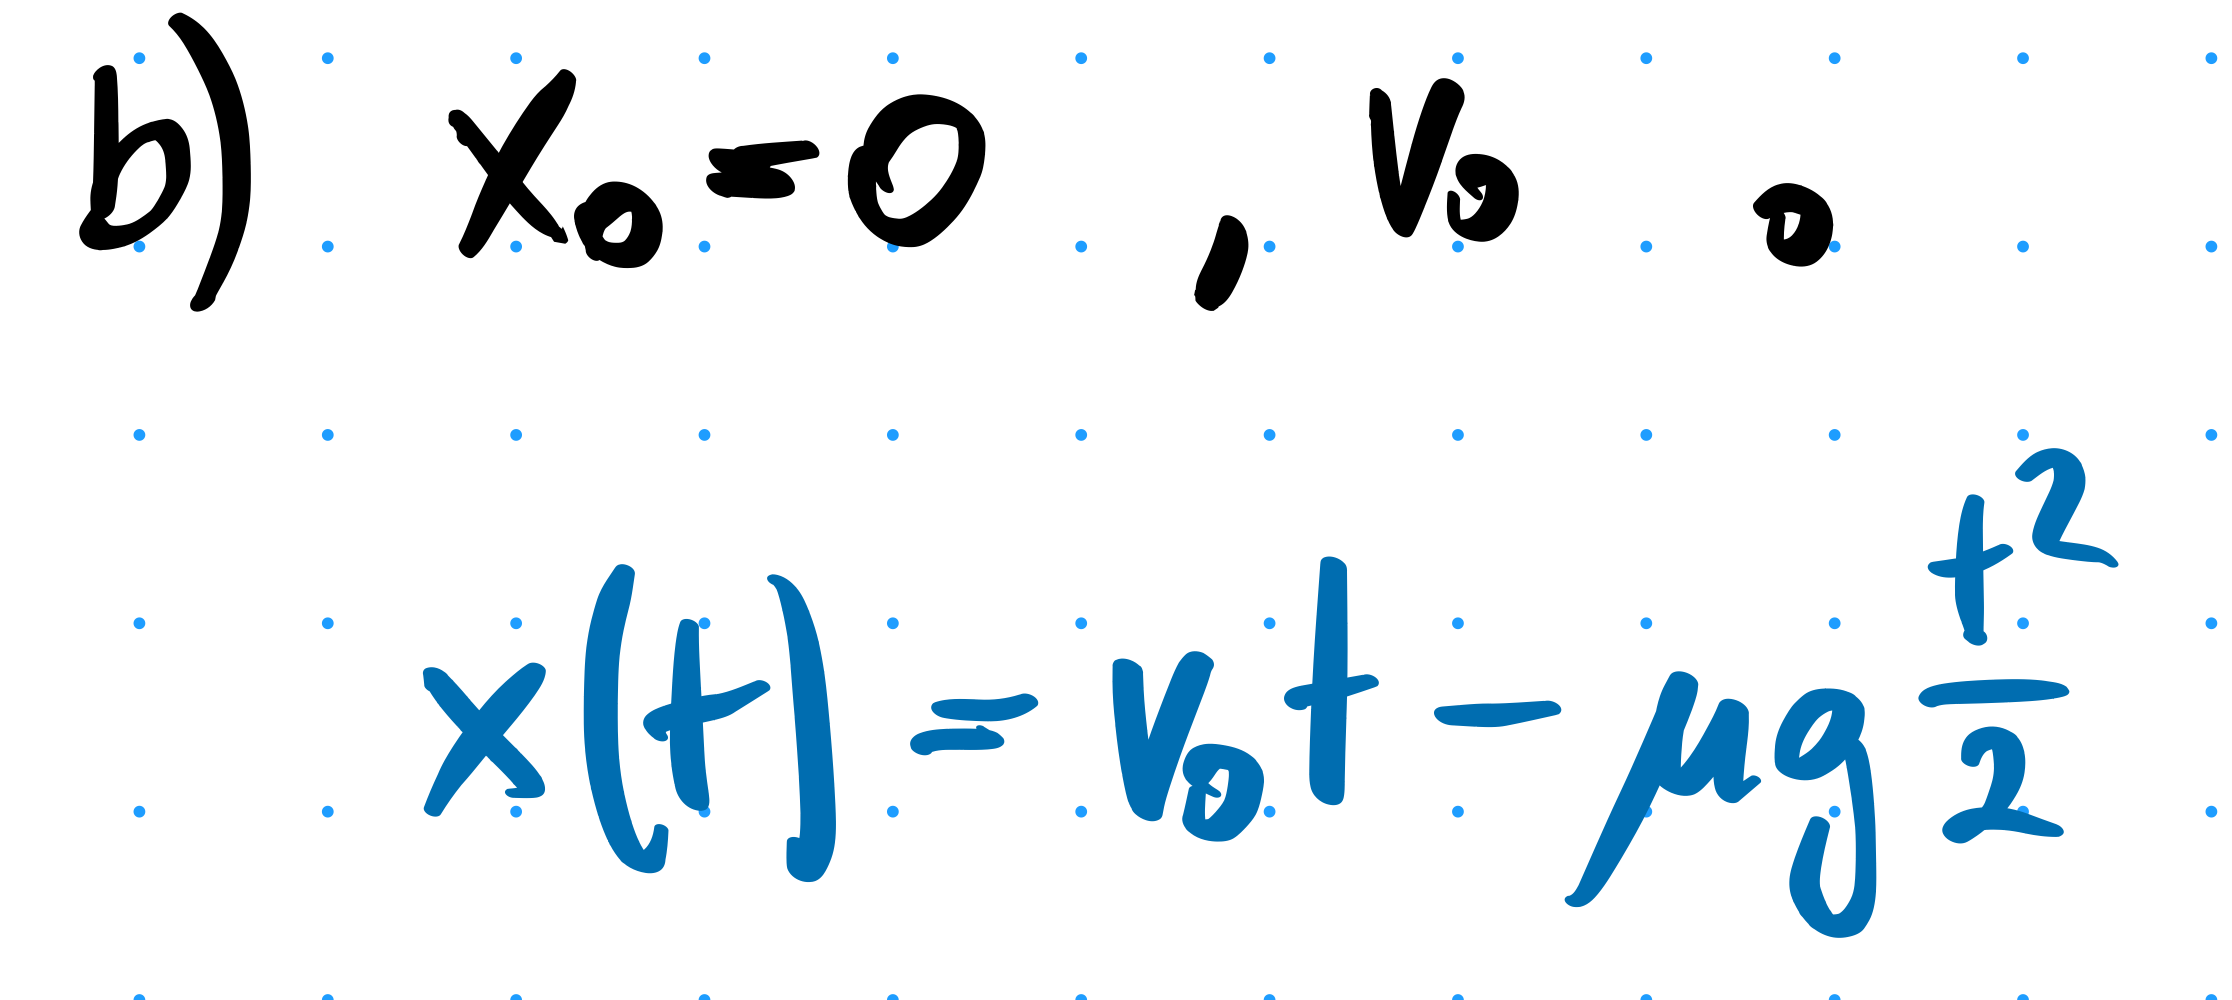 b) x₀ = 0 , v₀ .
x(t) = v₀t - μg t²/2